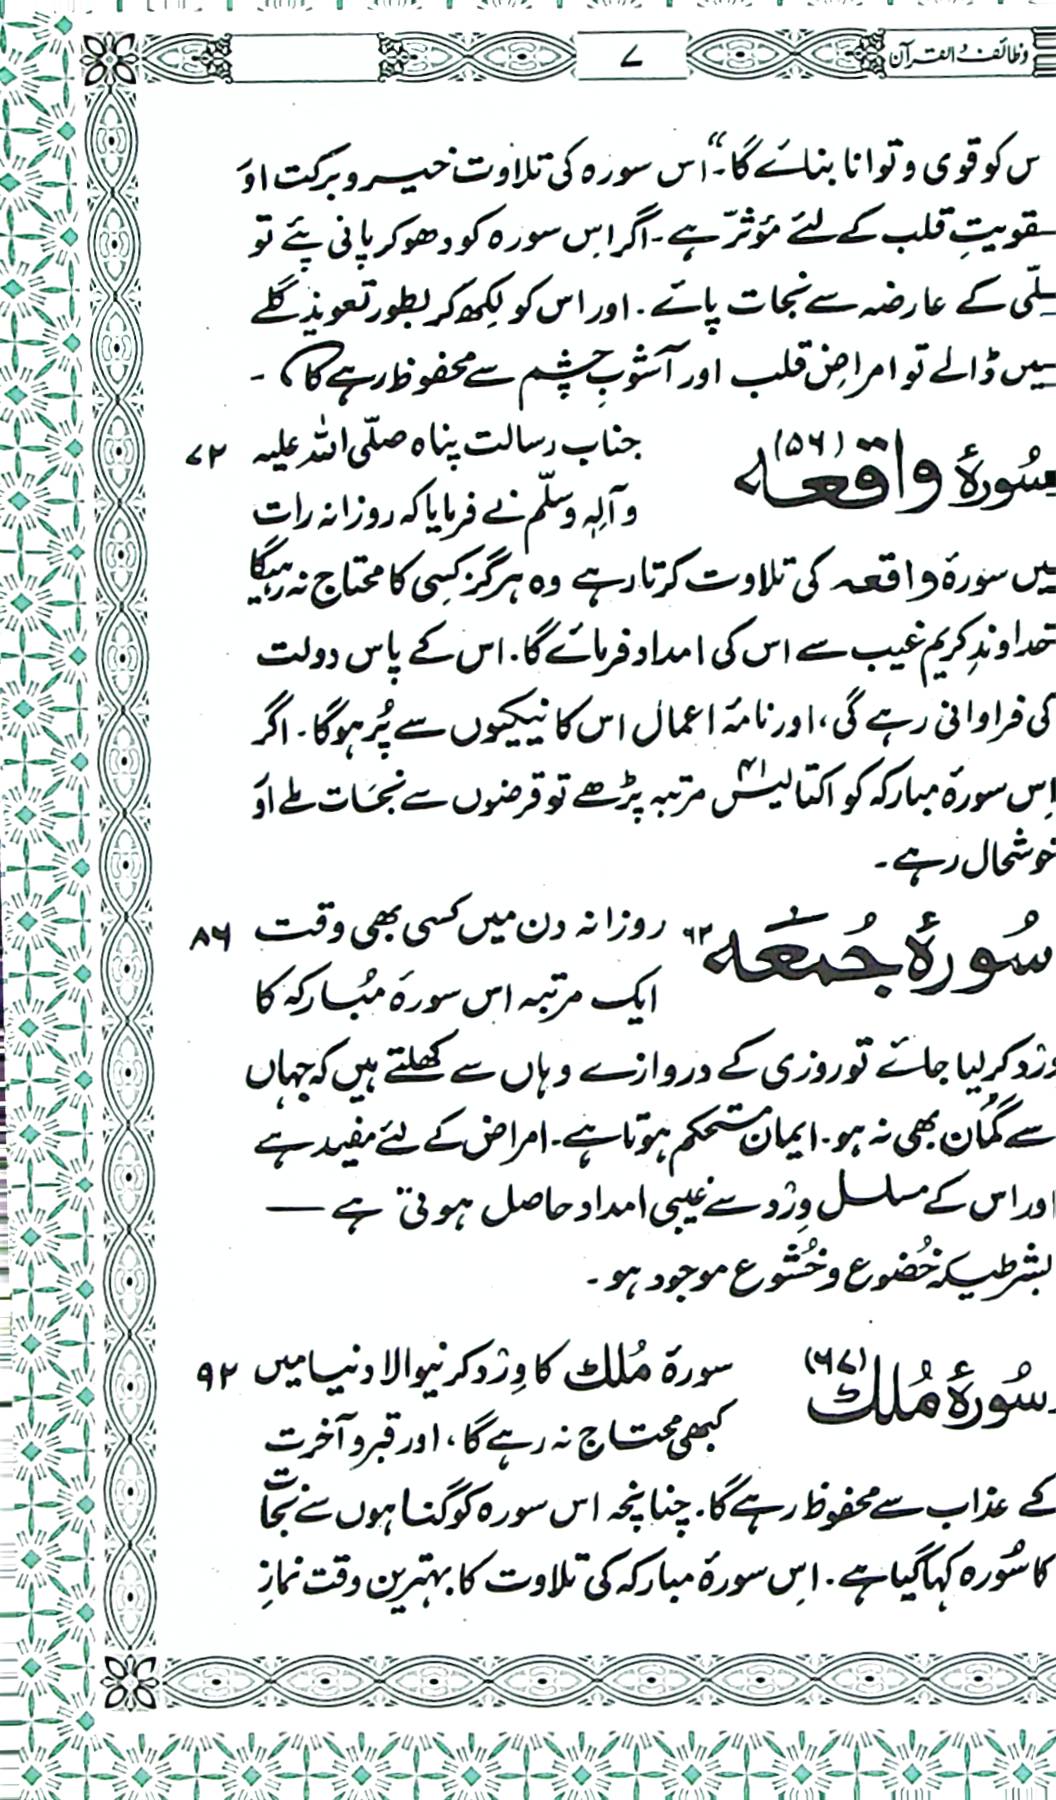 وظائف القرآن
۷
س کو قوی و توانا بنائے گا۔“ اس سورہ کی تلاوت خیر و برکت اوَ
تقویتِ قلب کے لئے مؤثرّ ہے۔ اگر اِس سورہ کو دھو کر پانی پئے تو
کے عارضہ سے نجات پائے۔ اور اس کو لِکھ کر بطور تعویذ گلے
میں ڈالے تو امراضِ قلب اور آشوبِ چشم سے محفوظ رہے گا۔
سُورۂ واقعہ (۵۶) جناب رسالت پناہ صلّی اللہ علیہ ۷۲
و آلِہٖ وسلّم نے فرمایا کہ روزانہ رات
میں سورۂ واقعہ کی تلاوت کرتا رہے وہ ہرگز کِسی کا محتاج نہ رہیگا
خداوندِ کریم غیب سے اس کی امداد فرمائے گا۔ اس کے پاس دولت
کی فراوانی رہے گی، اور نامۂ اعمال اس کا نیکیوں سے پُر ہوگا۔ اگر
اِس سورۂ مبارکہ کو اکتالیس ۴۱ مرتبہ پڑھے تو قرضوں سے نجات ملے اوَ
خوشحال رہے۔
سُورۂ جُمعَہ ۶۲ روزانہ دن میں کسی بھی وقت ۸۶
ایک مرتبہ اس سورۂ مُبارکہ کا
وِرْد کر لیا جائے تو روزی کے دروازے وہاں سے کُھلتے ہیں کہ جہاں
سے گُمان بھی نہ ہو۔ ایمان مستحکم ہوتا ہے۔ امراض کے لئے مفید ہے
اور اس کے مسلسل وِرْد سے غیبی امداد حاصل ہوتی ہے —
بشرطیکہ خُضوع و خُشوع موجود ہو۔
سُورۂ مُلک (۶۷) سورۂ مُلک کا وِرْد کرنیوالا دنیا میں ۹۲
کبھی محتاج نہ رہے گا، اور قبر و آخرت
کے عذاب سے محفوظ رہے گا۔ چنانچہ اس سورہ کو گناہوں سے نجات
کا سُورہ کہا گیا ہے۔ اِس سورۂ مبارکہ کی تلاوت کا بہترین وقت نمازِ